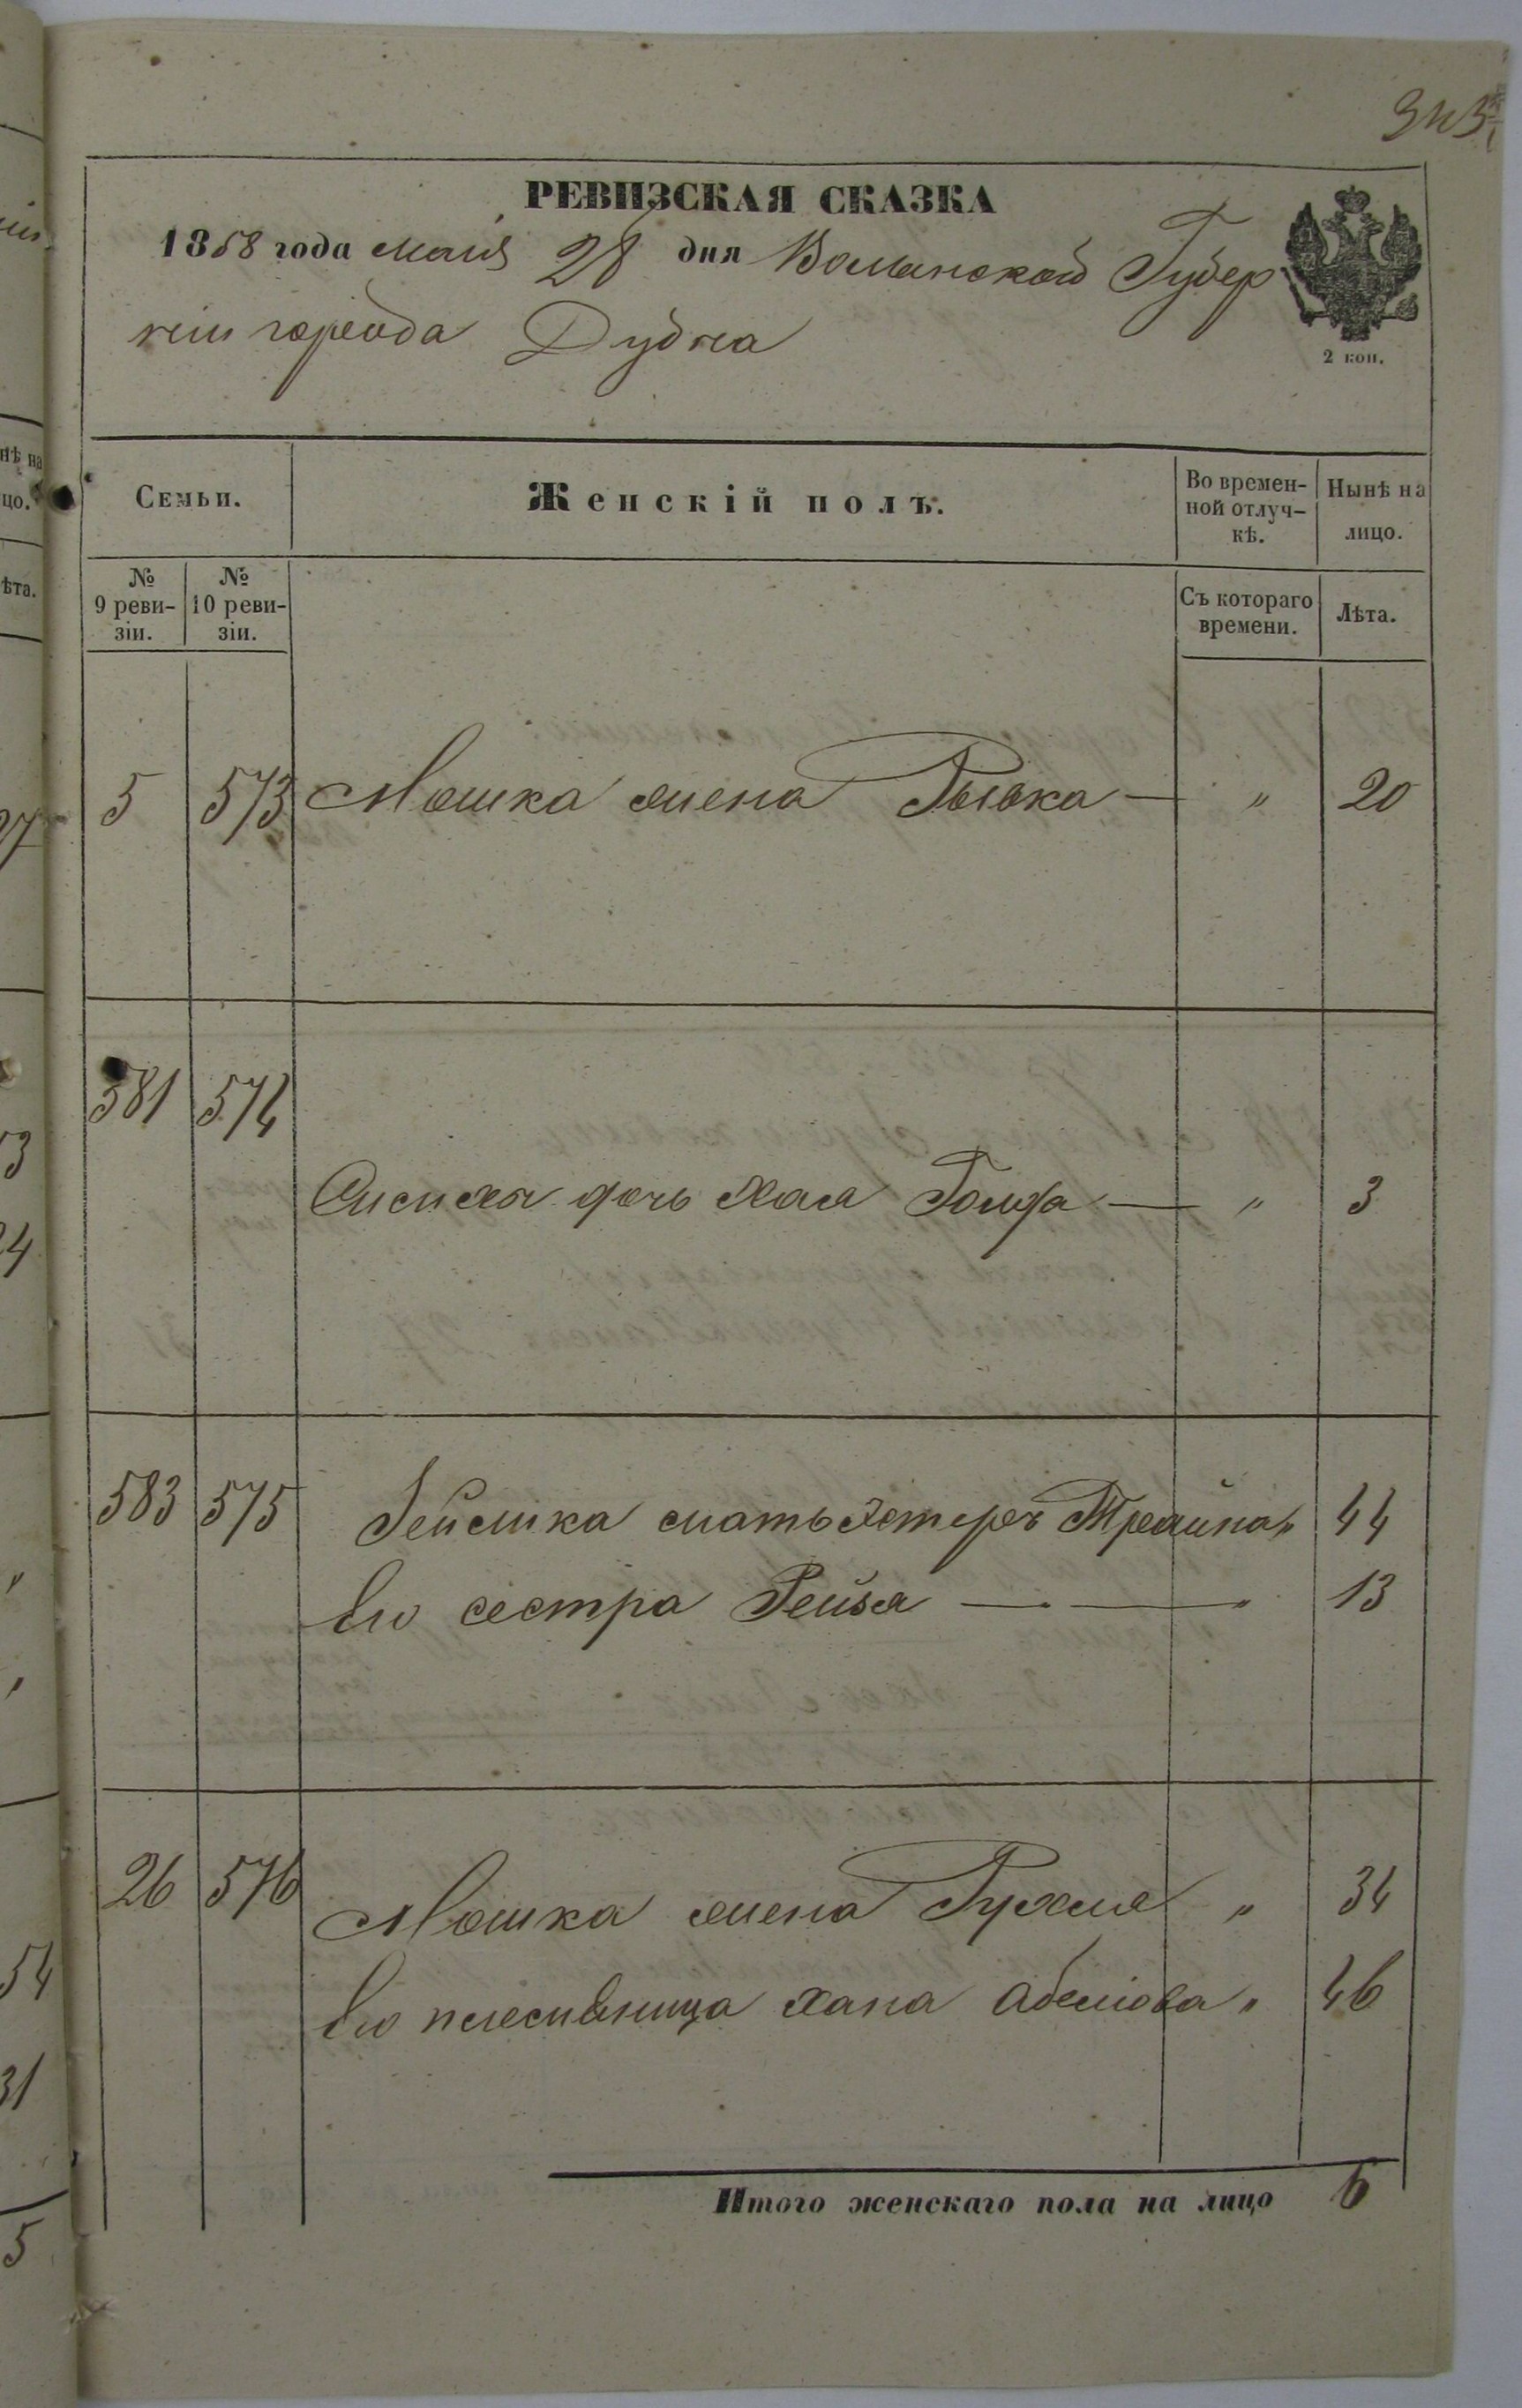 343
РЕВИЗСКАЯ СКАЗКА
1858 года маія 28 дня Волынской Губер
ніи города Дубна
2 коп.
Семьи.
Женскій полъ.
Во времен-
ной отлуч-
кѣ.
Нынѣ на
лицо.
№
9 реви-
зіи.
№
10 реви-
зіи.
Съ котораго
времени.
Лѣта.
5 573 Мошка жена Рывка — " 20
581 574
дочь Хая Голда — " 3
583 575 Зейлика мать Эстеръ Трайна " 44
Его сестра Рейзя — — " 13
26 576 Мошка жена Рухля " 34
Его племянница Хана Абелиова " 46
Итого женскаго пола на лицо 6